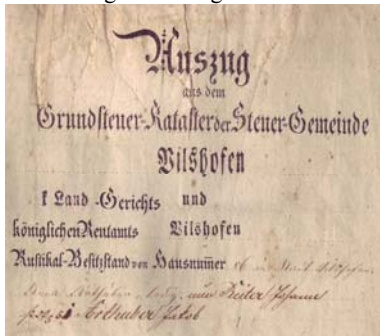 Auszug
aus dem
Grundsteuer-Kataster der Steuer-Gemeinde
Vilshofen
k Land-Gerichts und
königlichen Rentamts Vilshofen
Rustikal-Besitzstand von Hausnummer 86 in
nun Johann
Jakob